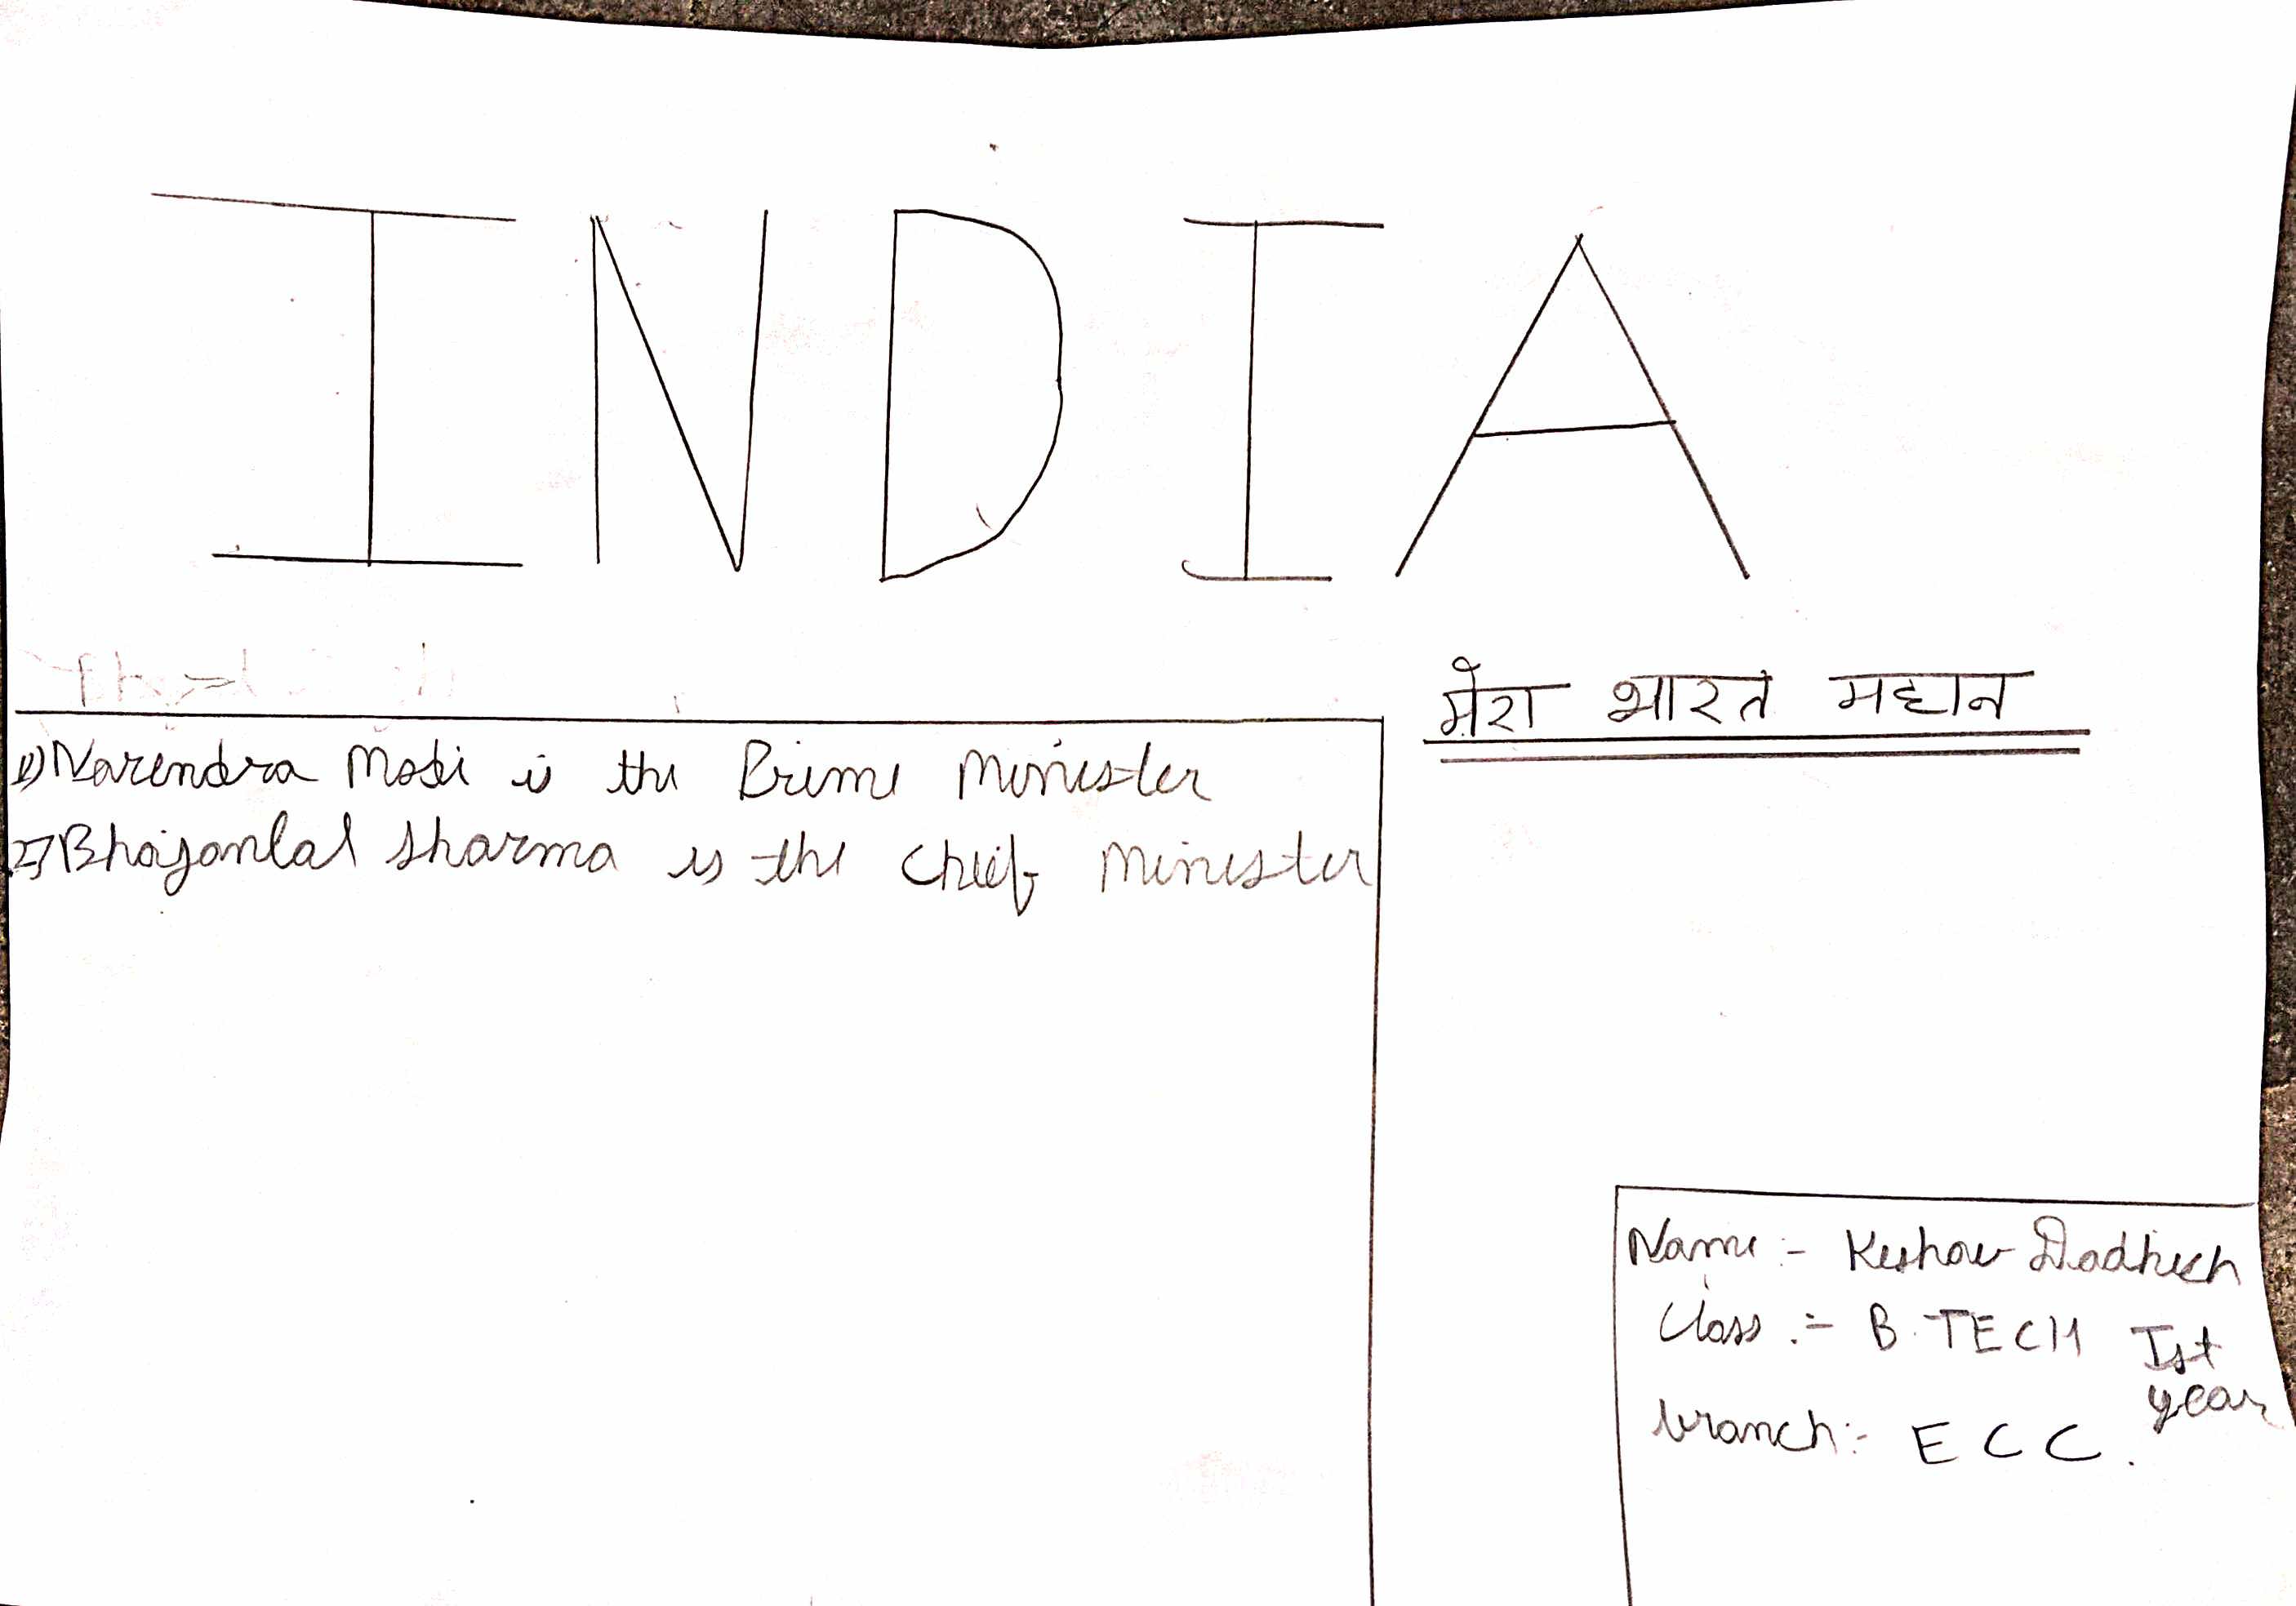 INDIA
मेरा भारत महान
1) Narendra Modi is the Prime Minister
2) Bhajanlal Sharma is the Chief Minister
Name :- Keshav Dadhich
Class :- B.TECH Ist year
branch :- ECC.